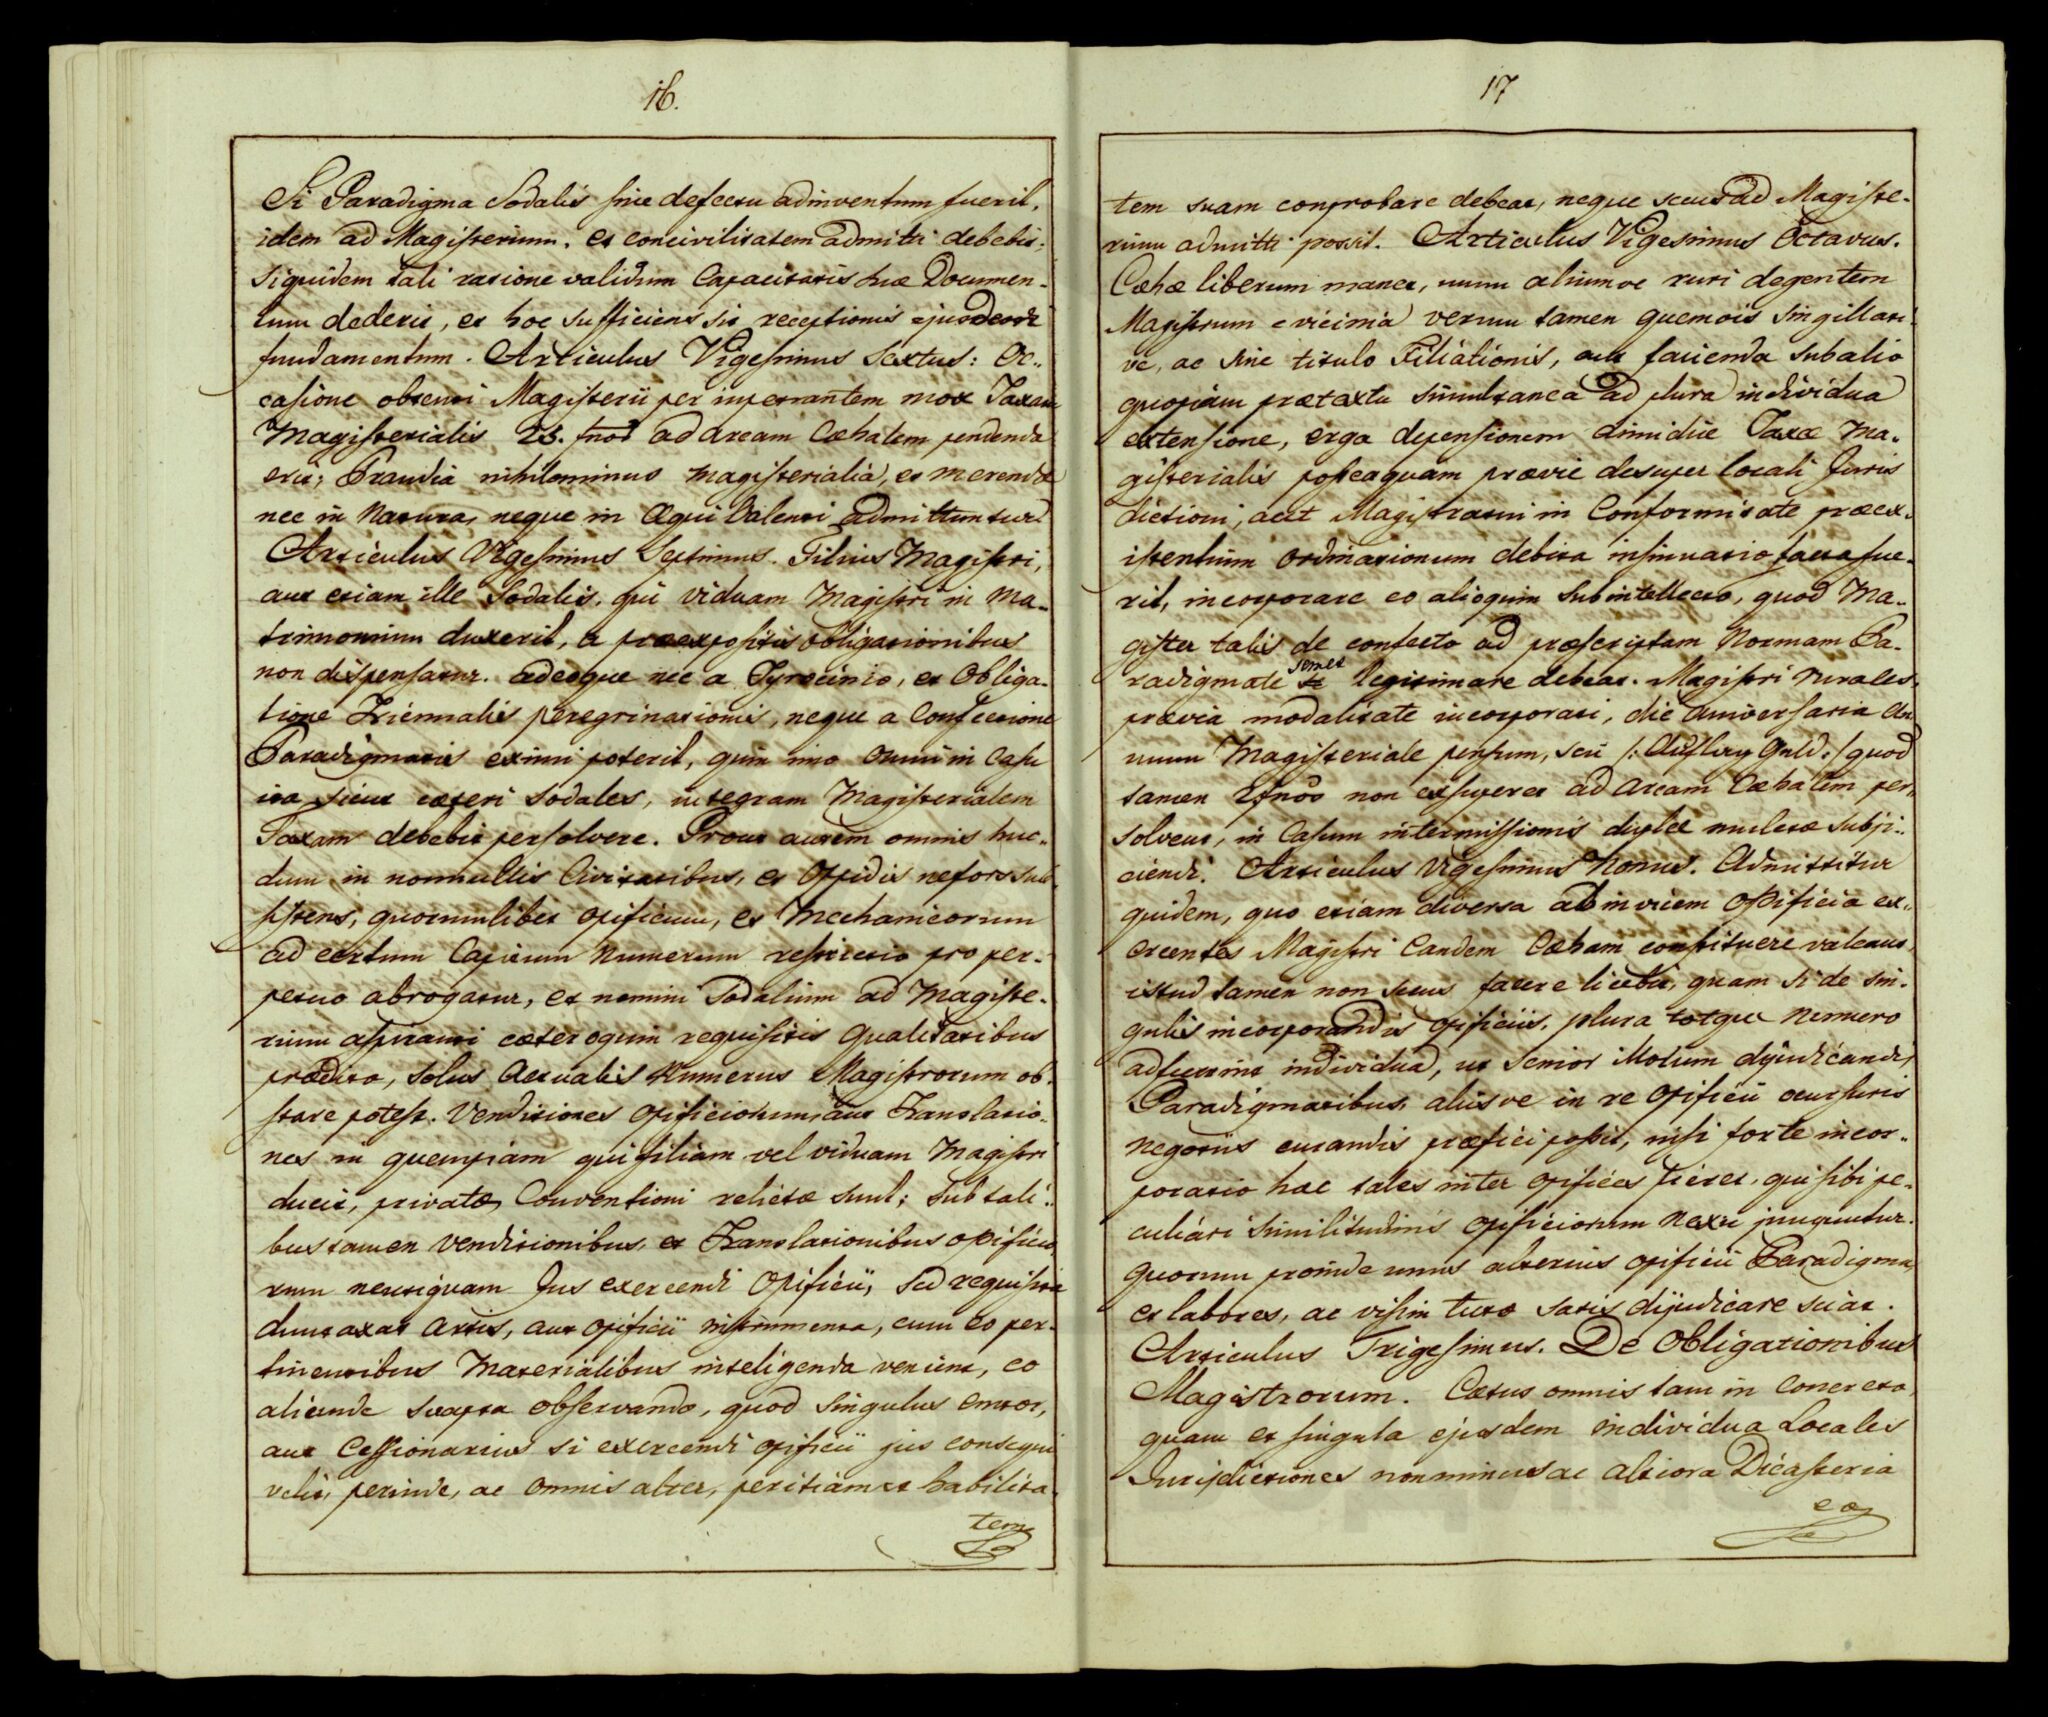 16.
Si Paradigma Sodalis sine defectu adinventum fuerit,
idem ad Magisterium, et concivilitatem admitti debebit;
siquidem tali ratione validum Capacitatis suæ Documen-
tum dederit, et hoc sufficiens sit receptionis ejusdem
fundamentum. Articulus Vigesimus Sextus: Oc-
casione obtenti Magisterii per impetrantem mox Taxa
Magisterialis 25. fnor ad arcam Cæhalem pendenda
erit; Prandia nihilominus Magisterialia, et merendæ
nec in Natura, neque in Æqui Valenti admittuntur.
Articulus Vigesimus Septimus. Filius Magistri,
aut etiam ille Sodalis, qui viduam Magistri in Ma-
trimonium duxerit, a præexpositis obligationibus
non dispensatur. adeoque nec a Tyrocinio, et Obliga-
tione Triennalis peregrinationis, neque a Confectione
Paradigmatis eximi poterit, quin imo omni in Casu
ita sicut cæteri Sodales, integram Magisterialem
Taxam debebit persolvere. Prout autem omnis huc-
dum in nonnullis Civitatibus, et Oppidis nefors sub-
sistens, quorumlibet opificum, et Mechanicorum
ad certum Capitum Numerum restrictio pro per-
petuo abrogatur, et nemini Sodalium ad Magiste-
rium aspiranti cæteroquin requisitis Qualitatibus
prædito, solus actualis Numerus Magistrorum ob-
stare potest. Venditiones opificiorum, aut Translatio-
nes in quempiam qui filiam vel viduam Magistri
ducit, privatæ Conventioni relictæ sunt; sub tali-
bus tamen Venditionibus, et Translationibus opificio-
rum neutiquam Jus exercendi Opificii, sed requisita
duntaxat artis, aut opificii instrumenta, cum eo per-
tinentibus Materialibus inteligenda veniunt, eo
aliunde suapta observando, quod singulus emtor,
aut Cessionarius si exercendi opificii jus consequi
velit, perinde, ac omnis alter, peritiam et habilita-
tem
17
tem suam comprobare debeat, neque secus ad Magiste-
rium admitti possit. Articulus Vigesimus Octavus.
Cæhæ liberum manet, unum aliumve ruri degentem
Magistrum e vicinia verum tamen quemvis singillati-
ve, ac sine titulo Filiationis, aut facienda sub alio
quopiam prætextu simultanea ad plura individua
extensione, erga depensionem dimidiæ Taxæ Ma-
gisterialis posteaquam prævie desuper locali Juris
dictioni, aut Magistratui in Conformitate præex-
istentium ordinationum debita insinuatio facta fue-
rit, incorporare eo alioquin subintellecto, quod Ma-
gister talis de confecto ad præscriptam Normam Pa-
radigmate semet legitimare debeat. Magistri rurales
prævia modalitate incorporati, die anniversaria an-
nuum Magisteriale pensum, seu /: Auflag Geld :/ quod
tamen 2 fnos non exsuperet ad arcam Cæhalem per-
solvent, in Casum intermissionis duplæ mulctæ subji-
ciendi. Articulus Vigesimus Nonus. Admittitur
quidem, quo etiam diversa ab invicem opificia ex-
ercentes Magistri Eandem Cæham constituere valeant,
istud tamen non secus facere licebit, quam si de sin-
gulis incorporandis opificiis, plura totque Numero
adfuerint individua, ut Senior Motum dijudicandis
Paradigmatibus, aliisve in re opificii
negotiis curandis præfici possit, nisi forte incor-
poratio hæc tales inter opifices fieret, qui sibi pe-
culiari similitudinis opificiorum Nexu junguntur.
quorum proinde unus alterius opificii Paradigma,
et labores, ac vissim tuto satis dijudicare sciat.
Articulus Trigesimus. De Obligationibus
Magistrorum. Cætus omnis tam in concreto,
quam et singula ejusdem individua Locales
Jurisdictiones non minus ac altiora Dicasteria
ea